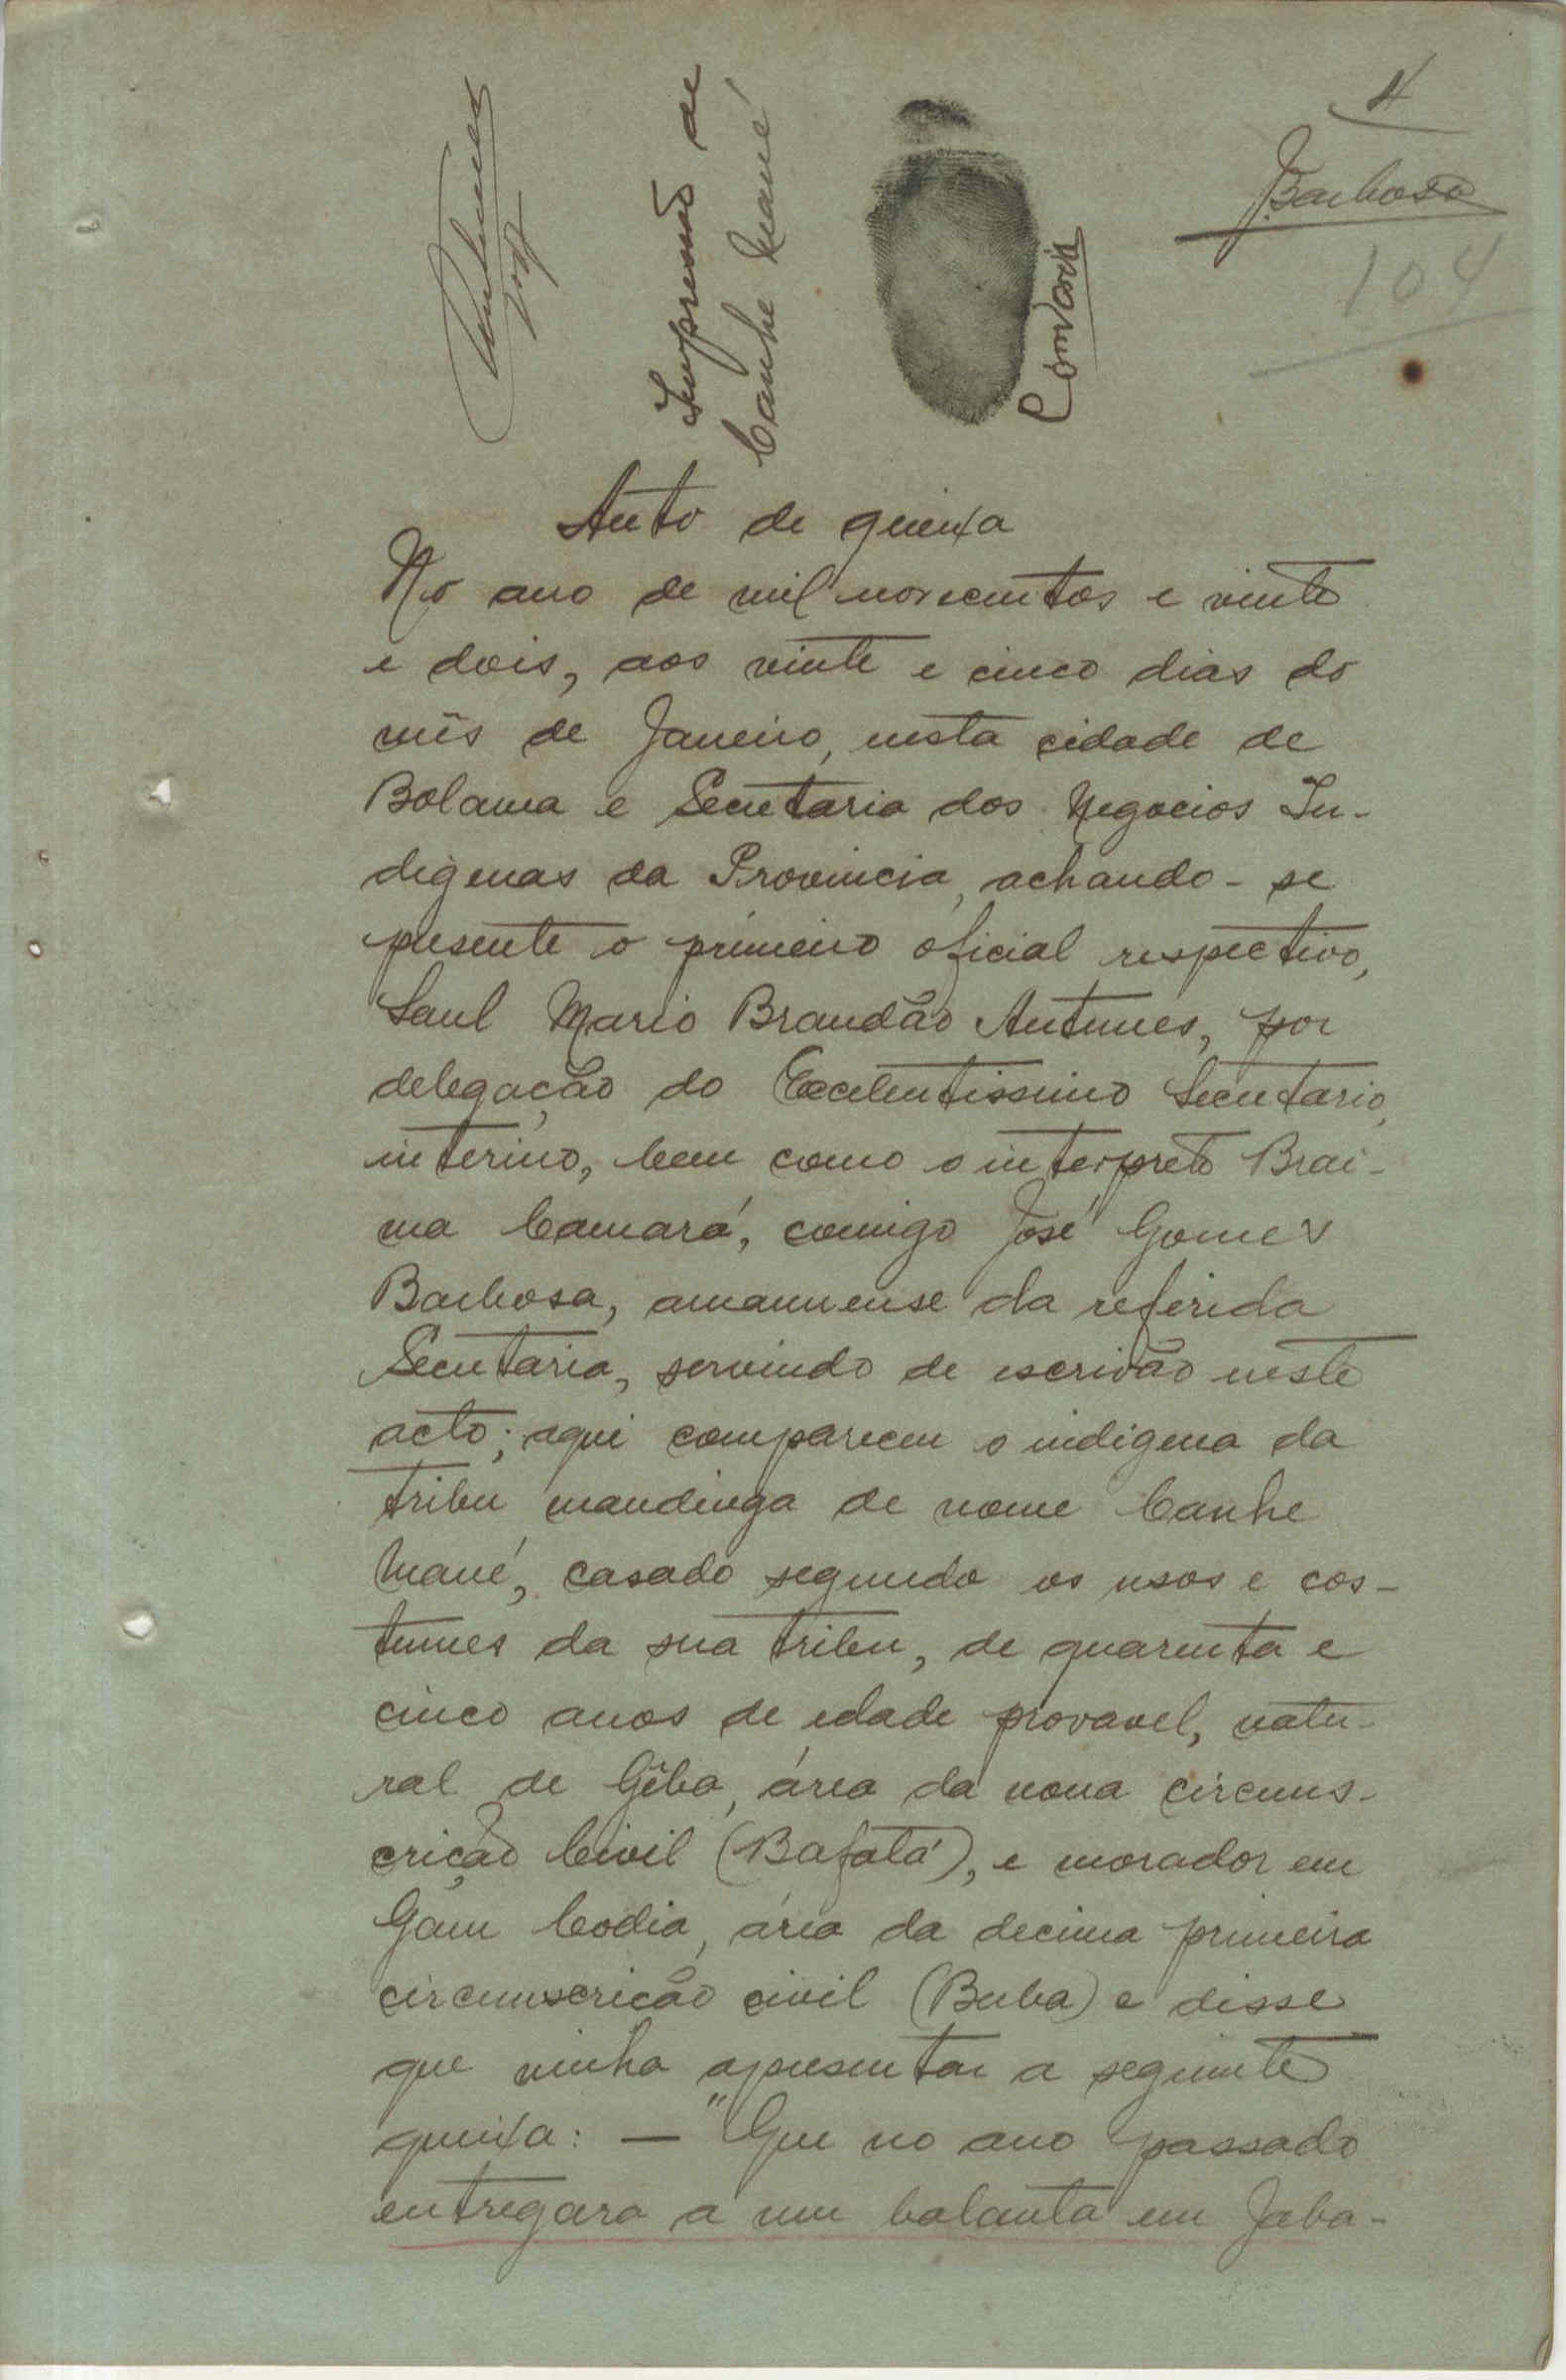 4
Barbosa
104
Antunes
Impressão de
Canhe Mané
Auto de queixa
No ano de mil novecentos e vinte
e dois, aos vinte e cinco dias do
mês de Janeiro, nesta cidade de
Bolama e Secretaria dos Negocios In-
digenas da Provincia, achando-se
presente o primeiro oficial respectivo,
Saul Mario Brandão Antunes, por
delegação do Excelentissimo Secretario,
interino, bem como o interprete Brai-
ma Camará, comigo José Gomes
Barbosa, amanuense da referida
Secretaria, servindo de escrivão neste
acto; aqui compareceu o indigena da
tribu mandinga de nome Canhe
Mané, casado segundo os usos e cos-
tumes da sua tribu, de quarenta e
cinco anos de edade provavel, natu-
ral de Gêba, área da nona circuns-
crição Civil (Bafatá), e morador em
Gam Codia, área da decima primeira
circunscricão civil (Buba) e disse
que vinha apresentar a seguinte
queixa: — "Que no ano passado
entregara a um balanta em Jaba-